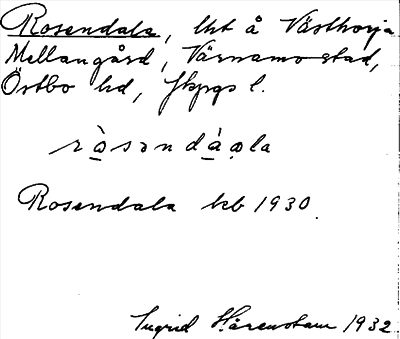 Rosendala, lht å Västhorja
Mellangård, Värnamo stad,
Östbo hd, Jkpgs l.
ròsəndáɑla
Rosendala kb 1930.
Ingrid Härenstam 1932